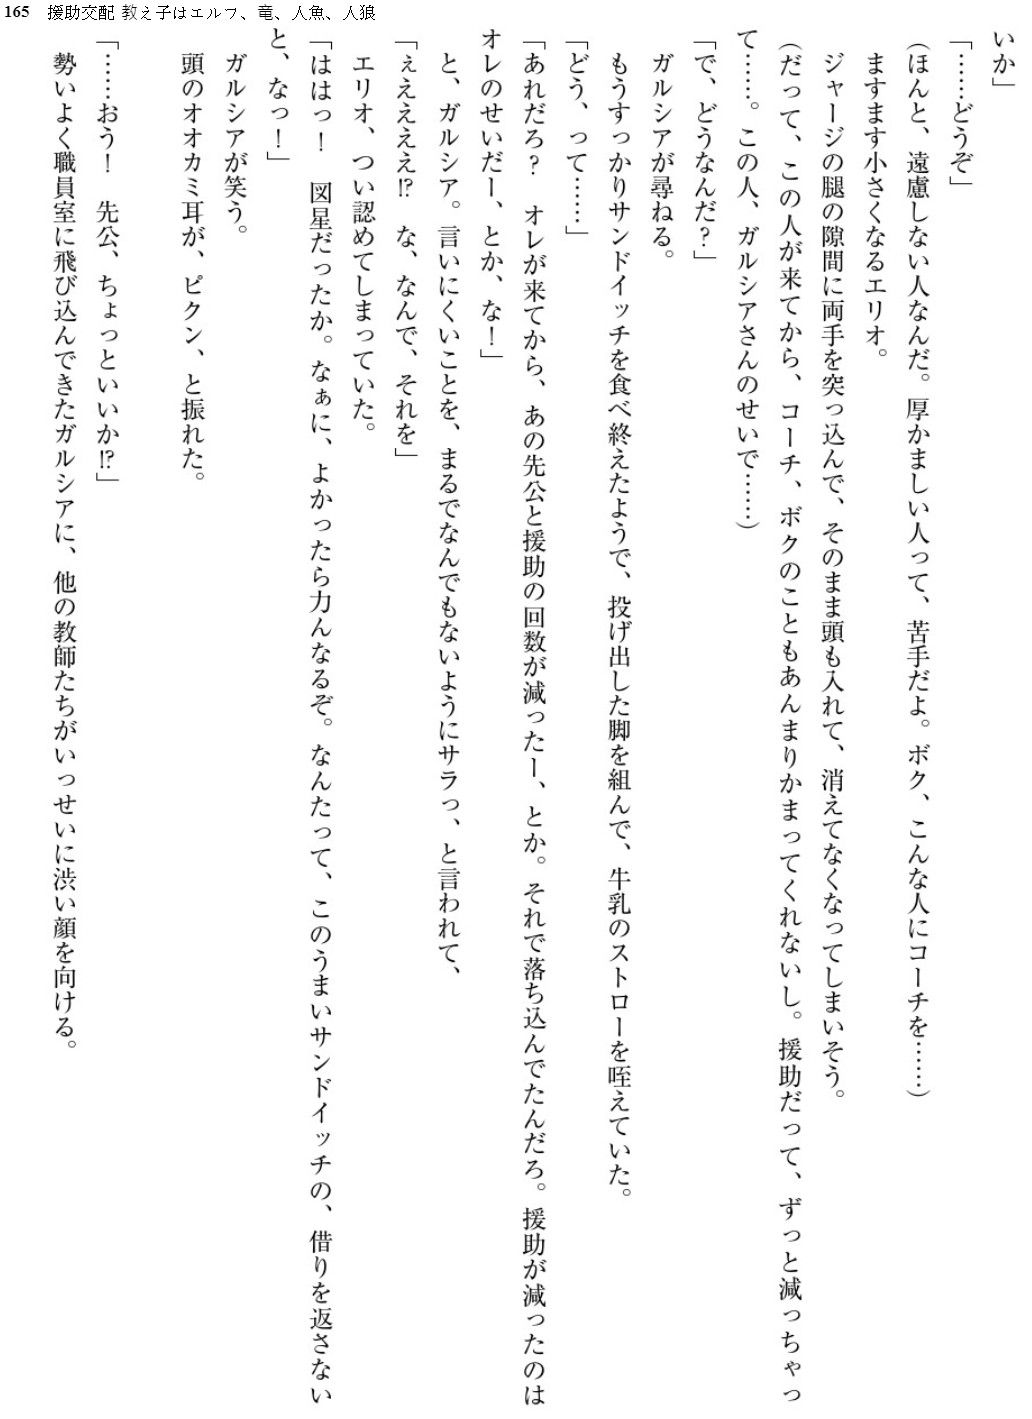 165 援助交配 教え子はエルフ、竜、人魚、人狼
いか」
「……どうぞ」
(ほんと、遠慮しない人なんだ。厚かましい人って、苦手だよ。ボク、こんな人にコーチを……)
ますます小さくなるエリオ。
ジャージの腿の隙間に両手を突っ込んで、そのまま頭も入れて、消えてなくなってしまいそう。
(だって、この人が来てから、コーチ、ボクのこともあんまりかまってくれないし。援助だって、ずっと減っちゃっ
て……。この人、ガルシアさんのせいで……)
「で、どうなんだ?」
ガルシアが尋ねる。
もうすっかりサンドイッチを食べ終えたようで、投げ出した脚を組んで、牛乳のストローを咥えていた。
「どう、って……」
「あれだろ? オレが来てから、あの先公と援助の回数が減ったー、とか。それで落ち込んでたんだろ。援助が減ったのは
オレのせいだー、とか、な!」
と、ガルシア。言いにくいことを、まるでなんでもないようにサラっ、と言われて、
「ええええぇ!? な、なんで、それを」
エリオ、つい認めてしまっていた。
「ははっ! 図星だったか。なぁに、よかったら力んなるぞ。なんたって、このうまいサンドイッチの、借りを返さない
と、なっ!」
ガルシアが笑う。
頭のオオカミ耳が、ピクン、と振れた。
「……おう! 先公、ちょっといいか!?」
勢いよく職員室に飛び込んできたガルシアに、他の教師たちがいっせいに渋い顔を向ける。